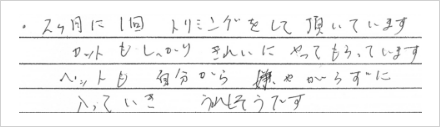 ・2ヶ月に1回 トリミングをして頂いています
カットもしっかりきれいにやってもらっています
ペットも自分から嫌やがらずに
入っていき うれしそうです